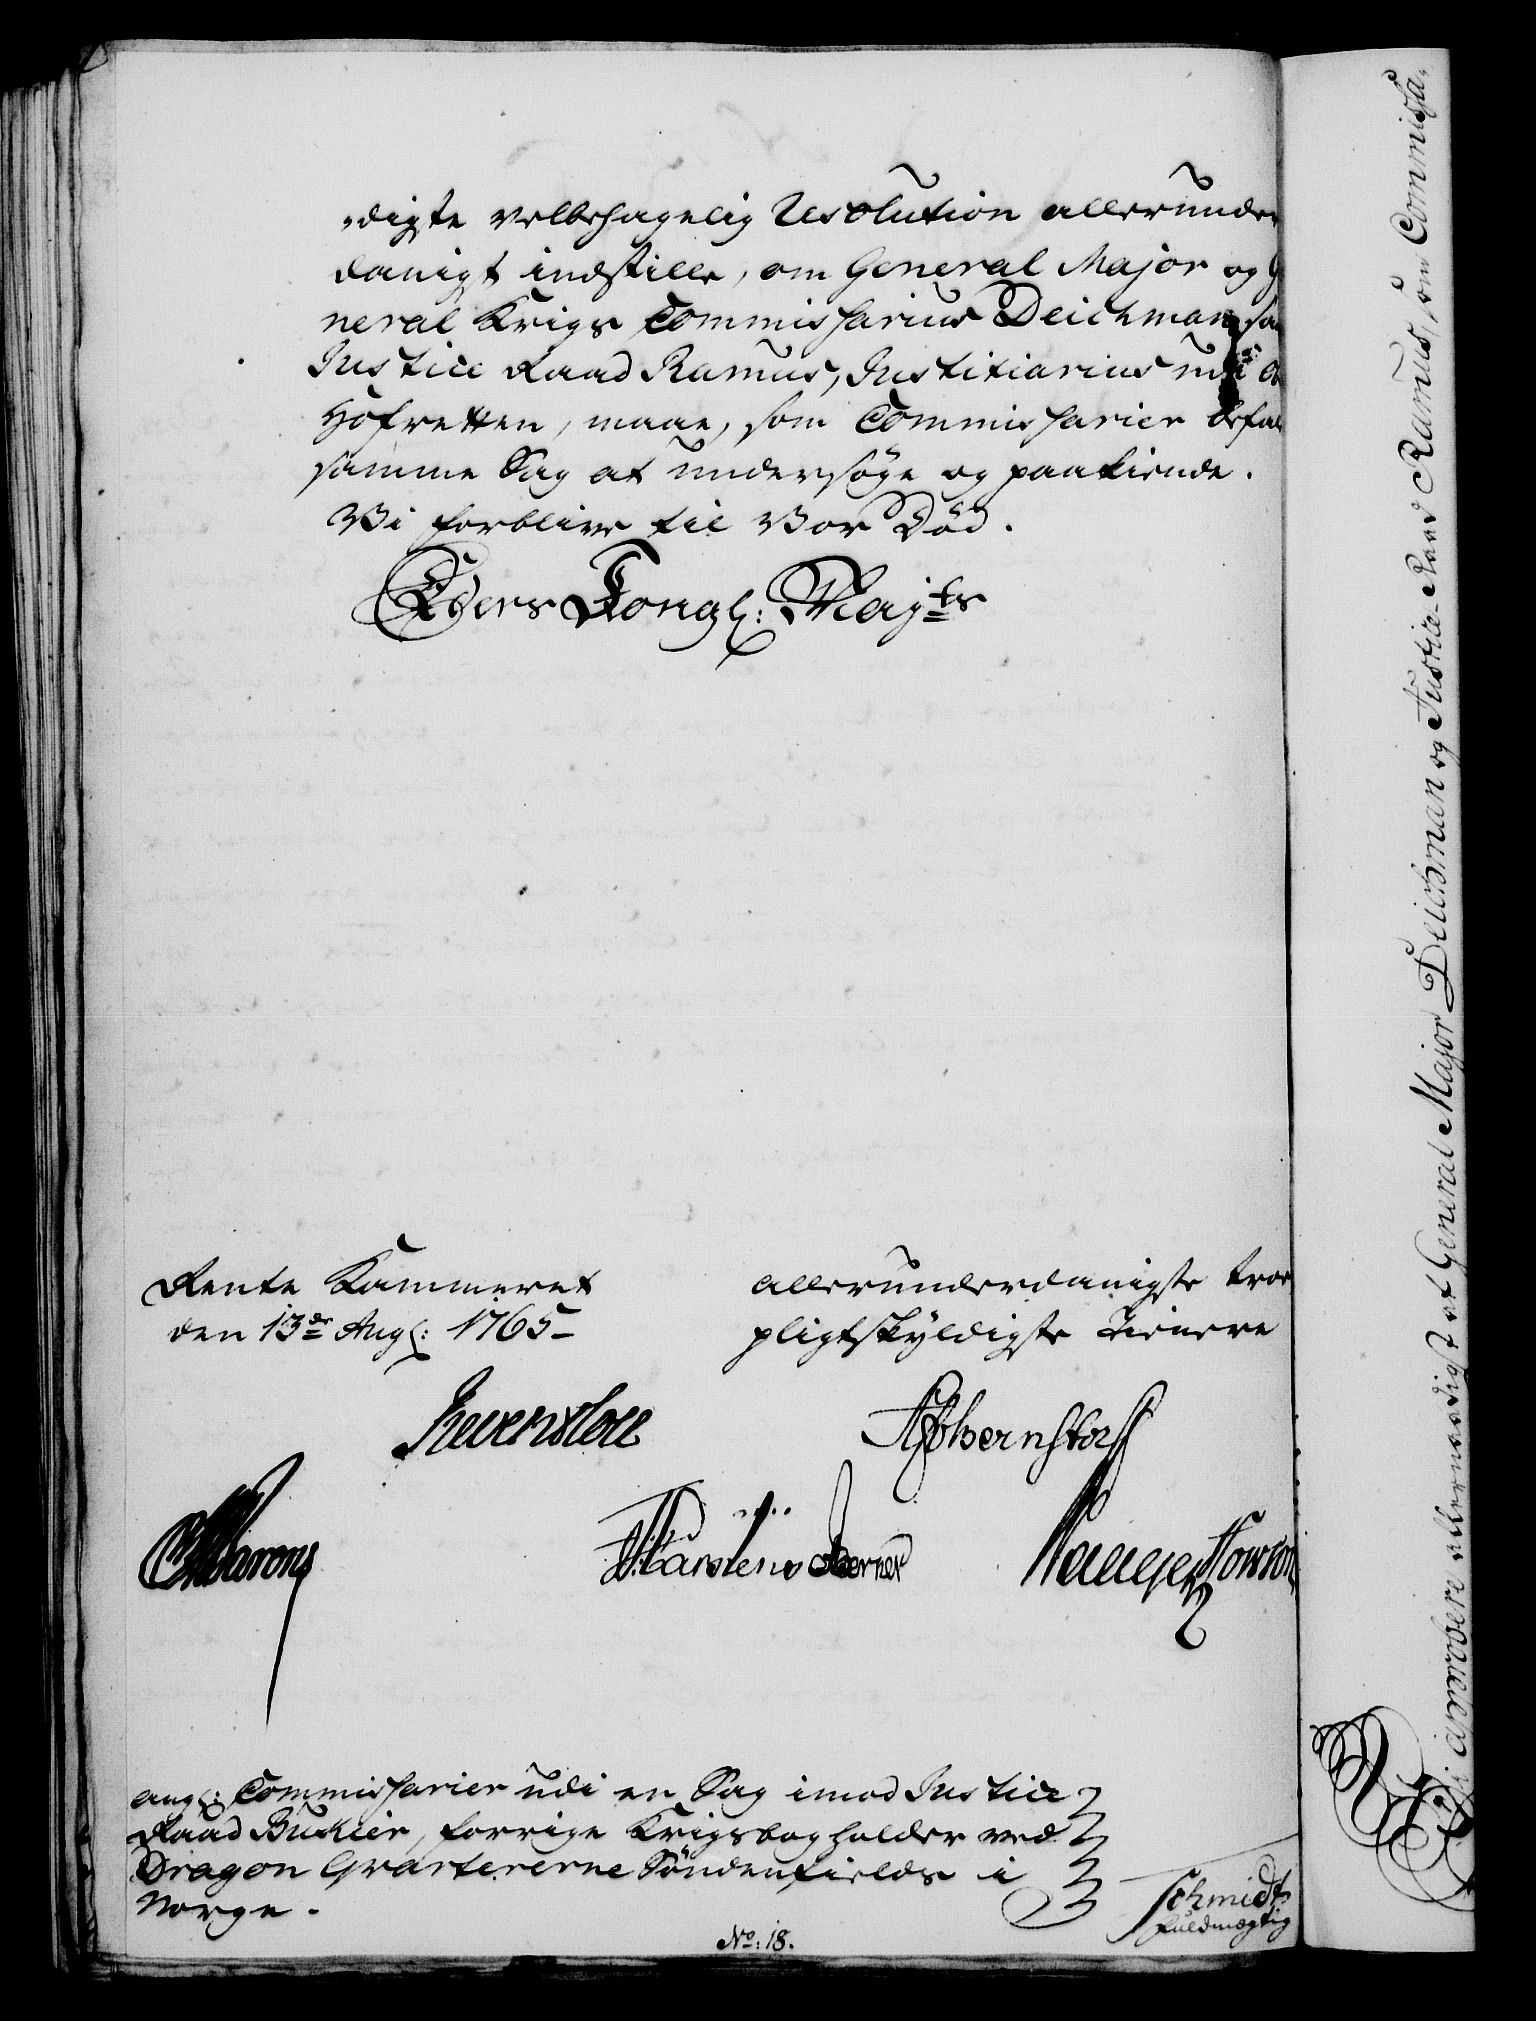 digste velbehagelig Resolution allerunder
danigt indstille, om General Major og G
neral Krigs Commissarius Deichman, sa
Justice Raad Ramus, Justitiarius udi O
Hofretten, maae, som Commissarier befal
samme Sag at undersøge og paakiende.
Vi forblive til Vor Död.
Eders Kongl: Maj:ts
Rente Kammeret
den 13de Augl: 1765
allerunderdanigste troe
pligtskyldigste Tienere
Reventlou
Bernstorff
Mörner
angl: Commissarier udi en Sag imod Justice
Raad Buskier, forrige Krigsbogholder ved
Dragon Qvartererne Söndenfields i
Norge.
Schmidt
fuldmegtig
No: 18.
Vi approbere allernaadigst at General Major Deichman og Justice-Raad Ramus, som Commissa,